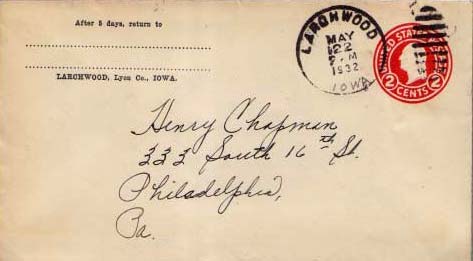 After 5 days, return to
LARCHWOOD, Lyon Co., IOWA.
LARCHWOOD
MAY
22
M
1932
IOWA
UNITED STATES
2 CENTS 2
Henry Chapman
333 South 16th St.
Philadelphia,
Pa.